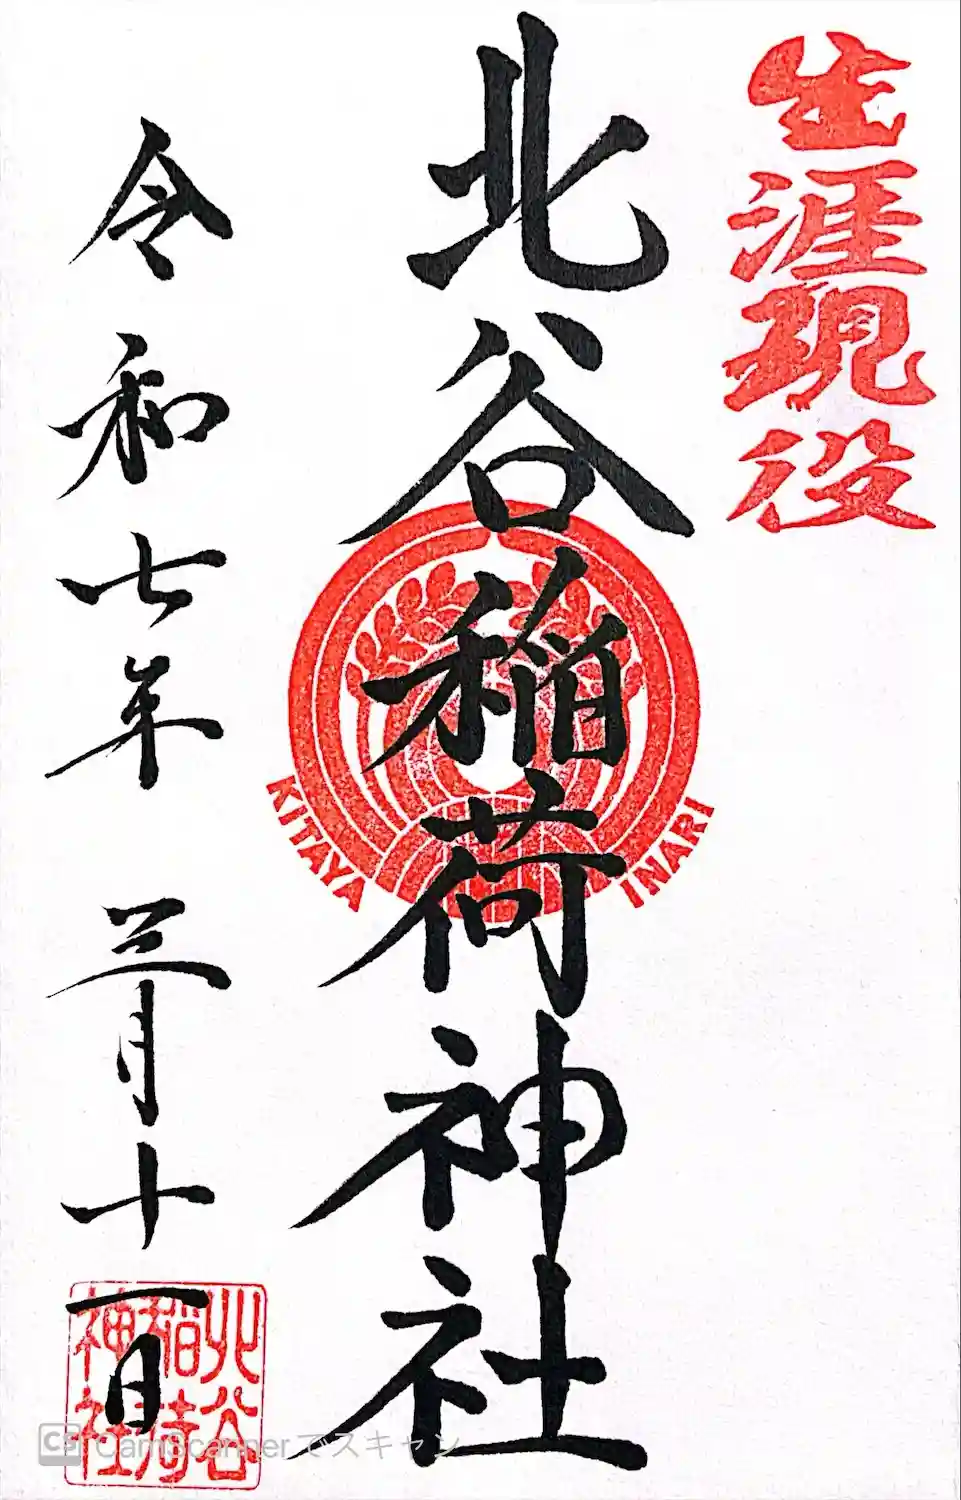 生涯現役
北谷稲荷神社
KITAYA INARI
令和七年 三月十一日
北谷稲荷神社
CS CamScannerでスキャン